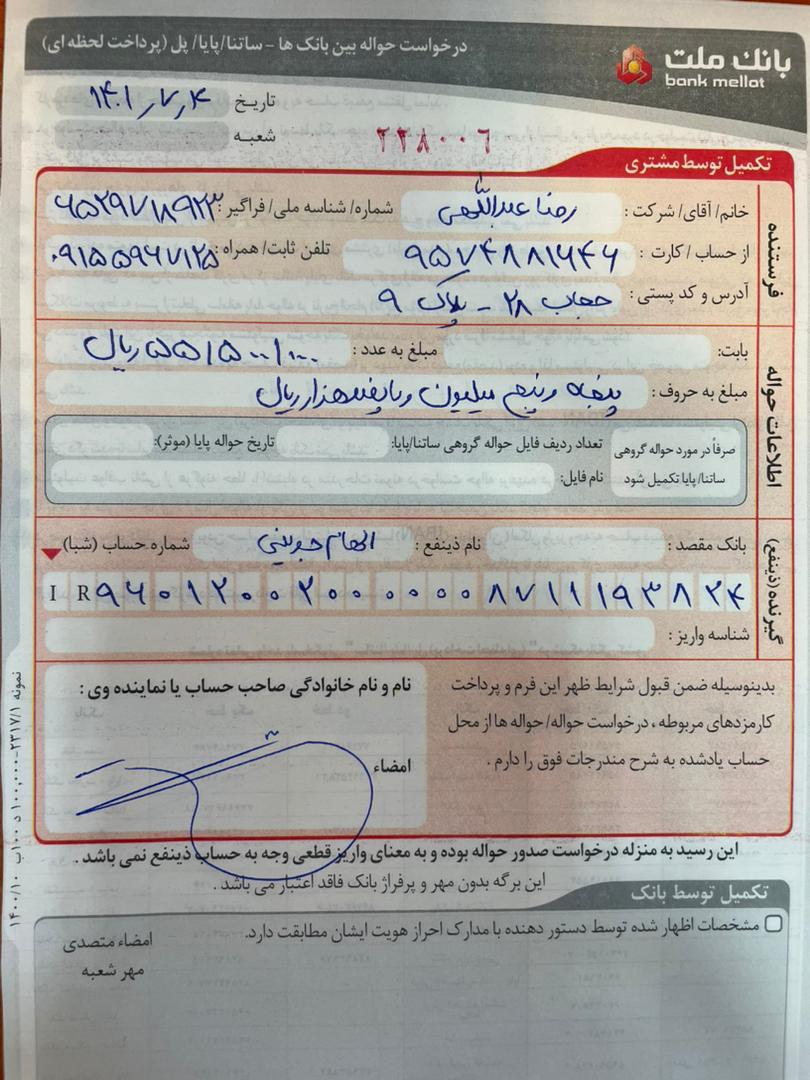 درخواست حواله بین بانک ها - ساتنا/پایا/ پل (پرداخت لحظه ای)
بانک ملت
bank mellot
تاریخ ۱۴۰۱٫۷٫۴
شعبه
۲۲۸۰۰۶
تکمیل توسط مشتری
فرستنده
خانم/ آقای/ شرکت : رضا عبداللهی شماره/ شناسه ملی/ فراگیر :
از حساب / کارت : ۹۵۷۴۸۸۱۶۴۶ تلفن ثابت/ همراه : ۰۹۱۵۵۹۶۷۱۲۵
آدرس و کد پستی : حجاب ۲۸ - پلاک ۹
اطلاعات حواله
بابت: مبلغ به عدد : ۵۵/۵۰۰/۰۰۰ ریال
مبلغ به حروف : پنجاه و پنج میلیون و پانصد هزار ریال
صرفاً در مورد حواله گروهی ساتنا/ پایا تکمیل شود
تعداد ردیف فایل حواله گروهی ساتنا/پایا: تاریخ حواله پایا (موثر):
نام فایل:
گیرنده (ذینفع)
بانک مقصد : نام ذینفع : الهام جوینی شماره حساب (شبا)
IR ۹۶۰۱۲۰۰۲۰۰۰۰۰۰۰۸۷۱۱۱۹۳۸۲۴
شناسه واریز :
بدینوسیله ضمن قبول شرایط ظهر این فرم و پرداخت
کارمزدهای مربوطه ، درخواست حواله/ حواله ها از محل
حساب یادشده به شرح مندرجات فوق را دارم .
نام و نام خانوادگی صاحب حساب یا نماینده وی :
امضاء
این رسید به منزله درخواست صدور حواله بوده و به معنای واریز قطعی وجه به حساب ذینفع نمی باشد .
این برگه بدون مهر و پرفراژ بانک فاقد اعتبار می باشد .
تکمیل توسط بانک
مشخصات اظهار شده توسط دستور دهنده با مدارک احراز هویت ایشان مطابقت دارد.
امضاء متصدی
مهر شعبه
نمونه ۲۳۱۷/۱-۱۰۰،۰۰۰ د ۱۰۰ ب ۱۴۰۰/۱۰